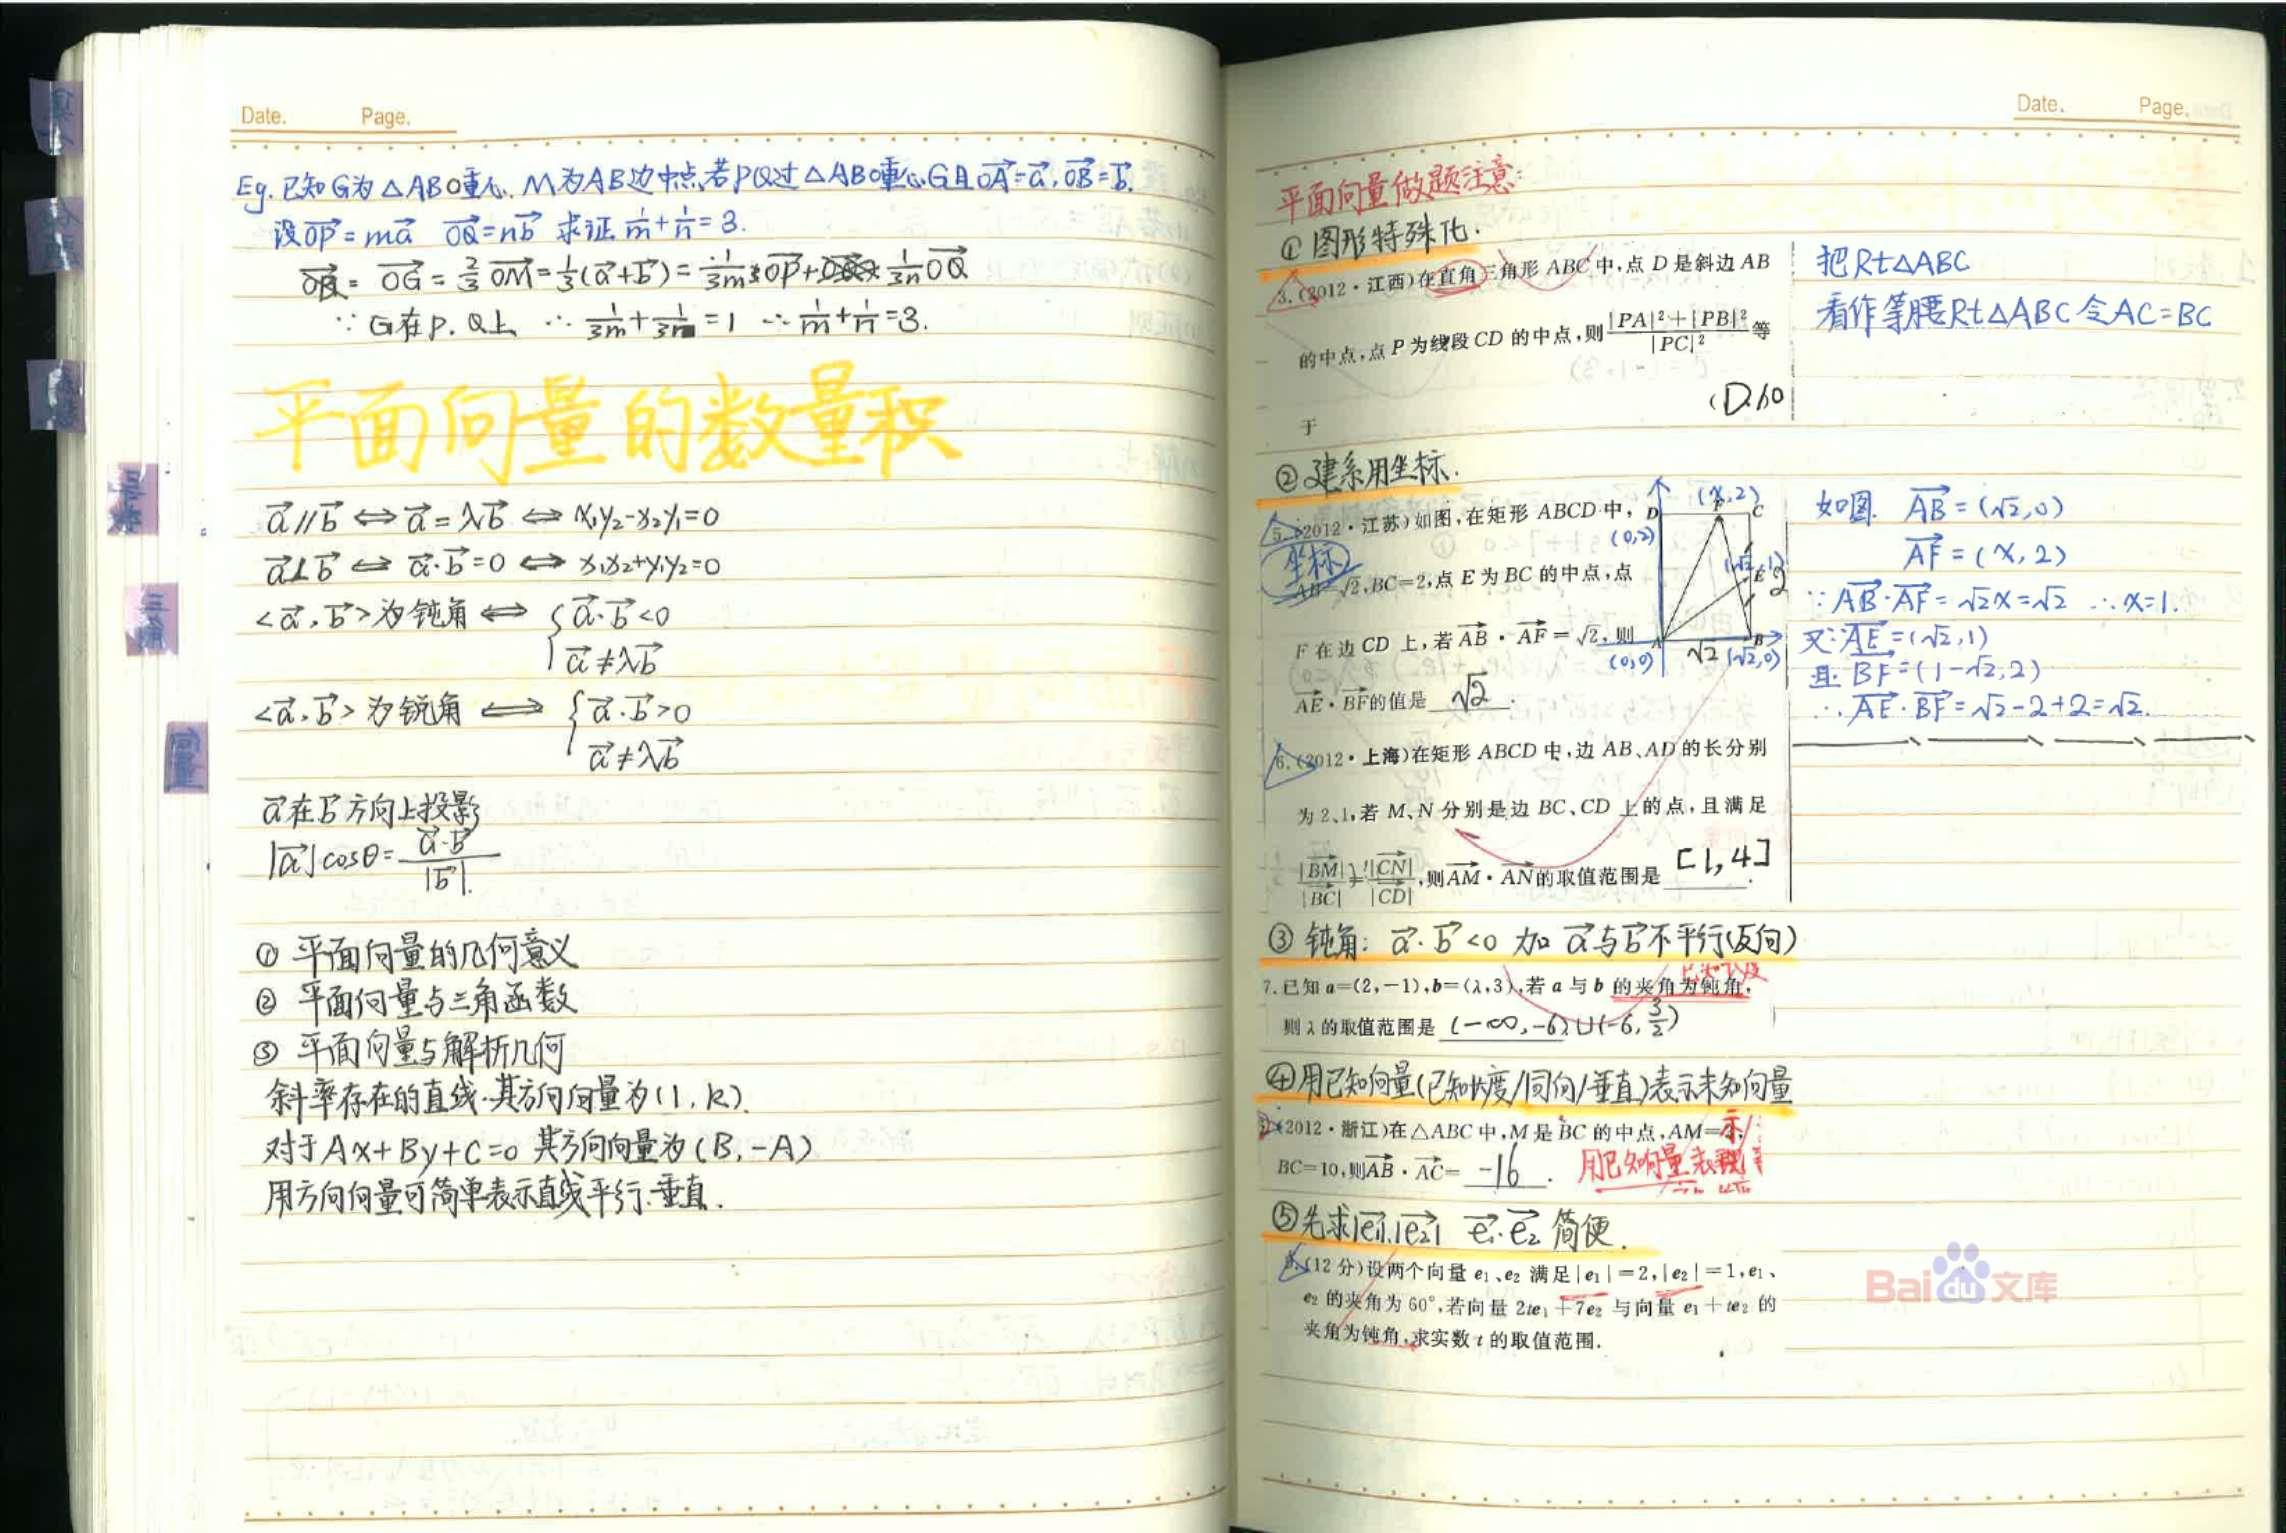 Date. Page.
Eg. 已知G为△ABO重心. M为AB边中点,若PQ过△ABO重心G且OA=a, OB=b.
设OP=ma OQ=nb 求证 1/m+1/n=3.
OG=2/3 OM=1/3(a+b)=1/3m OP+ 1/3n OQ
∵G在P.Q上 ∴1/3m+1/3n=1 ∴1/m+1/n=3.
平面向量的数量积
a∥b⇔a=λb⇔x₁y₂-x₂y₁=0
a⊥b⇔a·b=0⇔x₁x₂+y₁y₂=0
<a,b>为钝角⇔{a·b<0
a≠λb
<a,b>为锐角⇔{a·b>0
a≠λb
a在b方向上投影
|a|cosθ=a·b/|b|.
① 平面向量的几何意义
② 平面向量与三角函数
③ 平面向量与解析几何
斜率存在的直线.其方向向量为(1,k).
对于Ax+By+C=0 其方向向量为(B,-A)
用方向向量可简单表示直线平行.垂直.
三角
向量
Date. Page.
平面向量做题注意:
①图形特殊化.
3.(2012·江西)在直角三角形ABC中,点D是斜边AB
的中点,点P为线段CD的中点,则|PA|²+|PB|²/|PC|²等
于
(D.10
把Rt△ABC
看作等腰Rt△ABC令AC=BC
②建系用坐标.
5.(2012·江苏)如图,在矩形ABCD中,
坐标
AB=√2,BC=2,点E为BC的中点,点
F在边CD上,若AB·AF=√2,则
AE·BF的值是 √2 .
D (x,2) F C
(0,2)
(√2,1) E 2
A B
(0,0) √2 (√2,0)
如图. AB=(√2,0)
AF=(x,2)
∵AB·AF=√2x=√2 ∴x=1.
又∵AE=(√2,1)
且BF=(1-√2,2)
∴AE·BF=√2-2+2=√2.
6.(2012·上海)在矩形ABCD中,边AB、AD的长分别
为2、1,若M、N分别是边BC、CD上的点,且满足
|BM|/|BC|=|CN|/|CD|,则AM·AN的取值范围是 [1,4] .
③ 钝角: a·b<0 加 a与b不平行(反向)
7.已知a=(2,-1),b=(λ,3),若a与b的夹角为钝角,
则λ的取值范围是 (-∞,-6)∪(-6,3/2)
④用已知向量(已知长度/同向/垂直)表示未知向量
(2012·浙江)在△ABC中,M是BC的中点,AM=3,
BC=10,则AB·AC= -16 .
用已知向量表示
⑤先求|e₁|.|e₂| e₁·e₂ 简便.
(12分)设两个向量e₁、e₂满足|e₁|=2,|e₂|=1,e₁、
e₂的夹角为60°,若向量2te₁+7e₂与向量e₁+te₂的
夹角为钝角,求实数t的取值范围.
Baidu文库